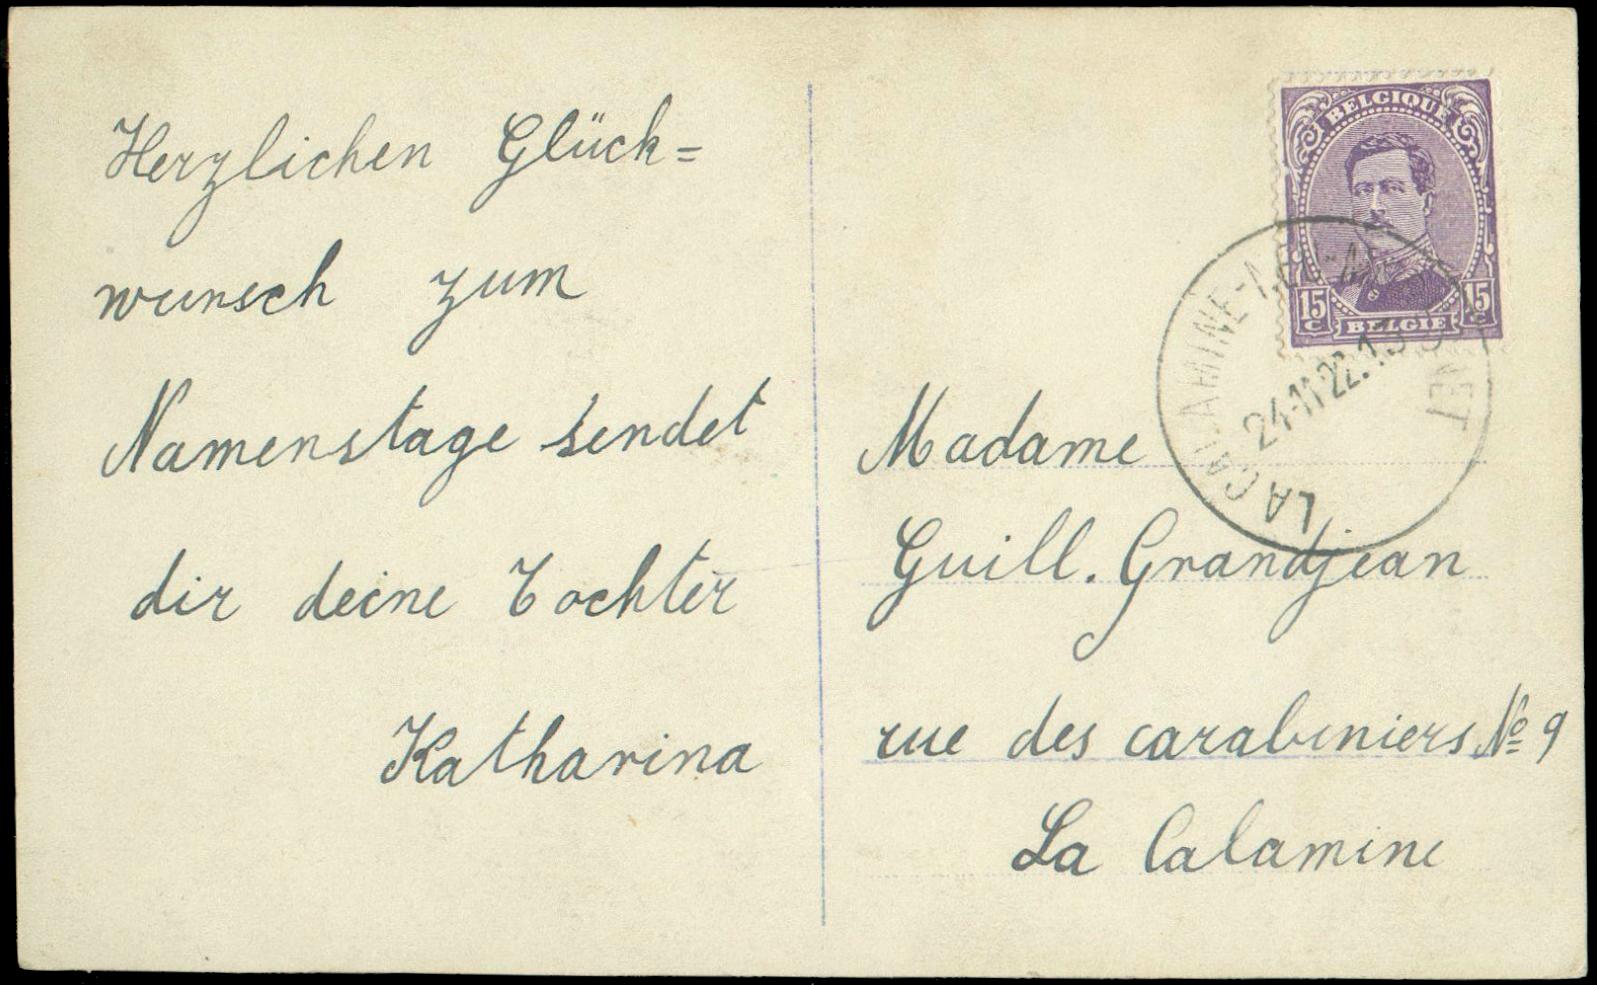 Herzlichen Glück=
wunsch zum
Namenstage sendet
dir deine Tochter
Katharina
BELGIQUE
15 C 15 C
BELGIË
LA CALAMINE-
24-11 22.13
Madame
Guill. Grandjean
rue des carabiniers № 9
La Calamine